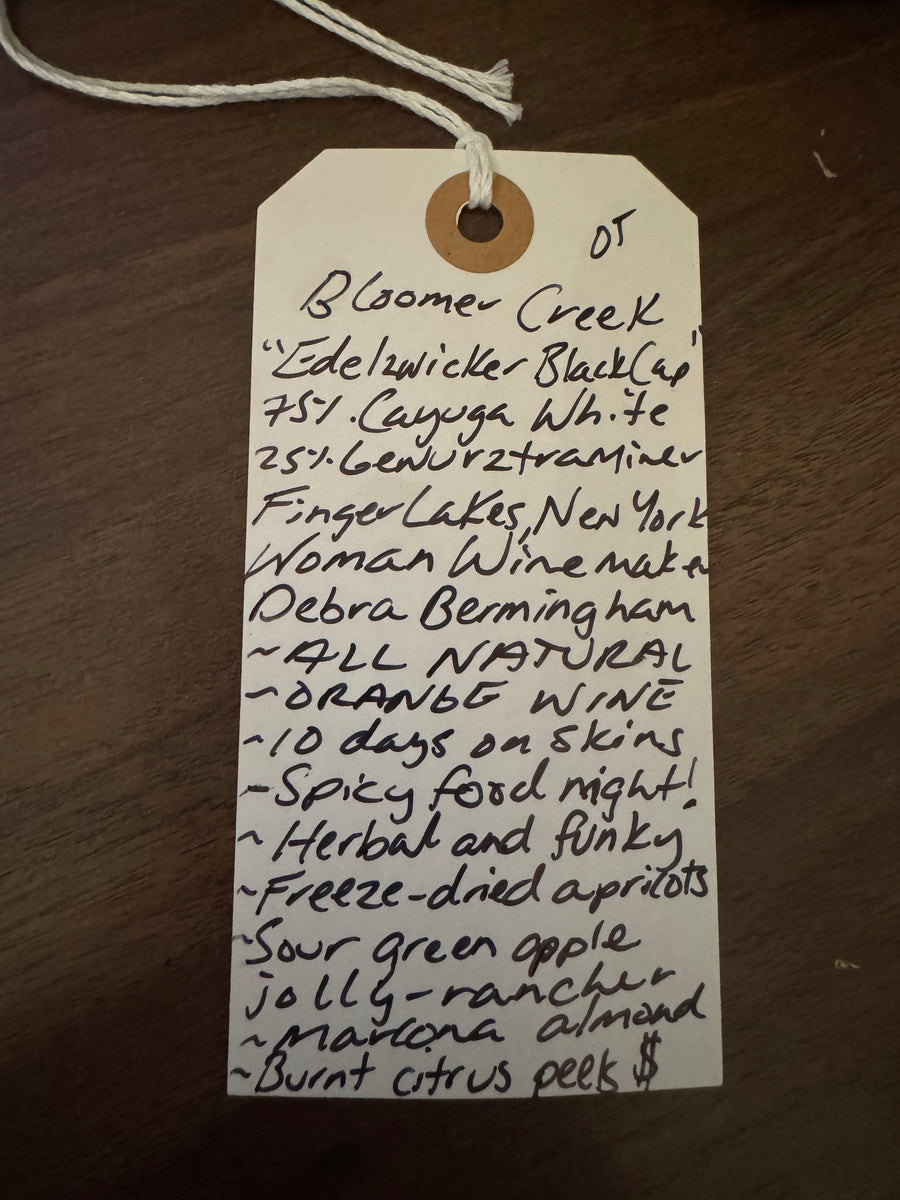 OT
Bloomer Creek
"Edelzwicker BlackCap"
75% Cayuga White
25% Gewurztraminer
Finger Lakes, New York
Woman Winemaker
Debra Bermingham
~ALL NATURAL
~ORANGE WINE
~10 days on skins
~Spicy food night!
~Herbal and funky
~Freeze-dried apricots
~Sour green apple
jolly-rancher
~Marcona almond
~Burnt citrus peels $